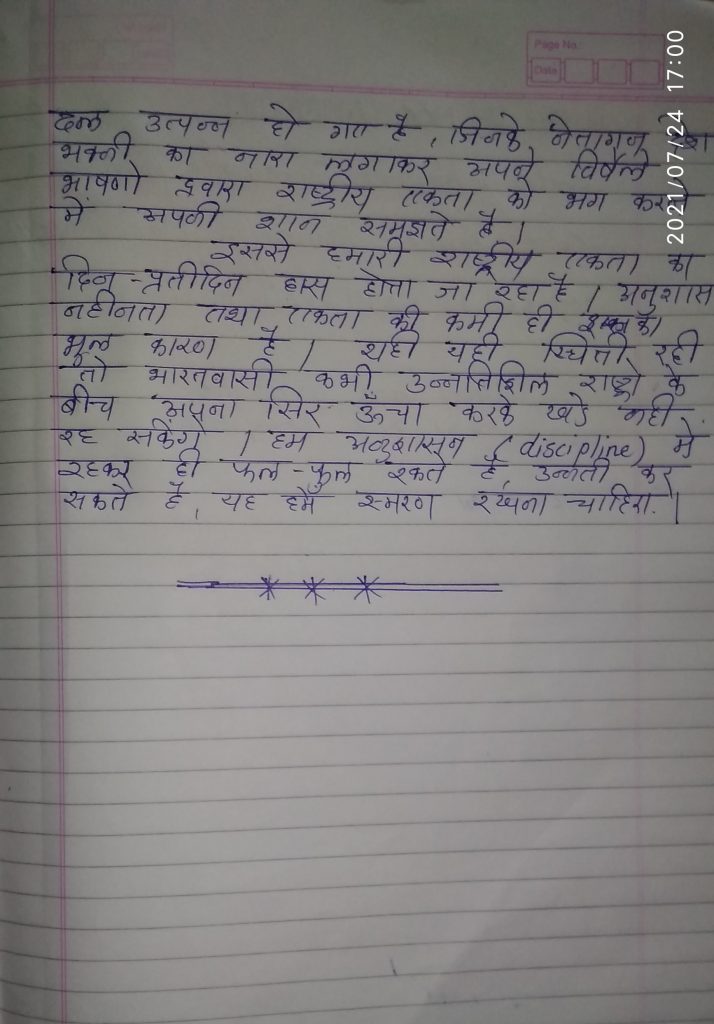 Page No.:
Date
2021/07/24 17:00
दल उत्पन्न हो गए है, जिनके नेतागन
भक्ती का नारा लगाकर अपने विषैले
भाषणो द्वारा राष्ट्रीय एकता को भंग करने
में अपनी शान समझते है।
इससे हमारी राष्ट्रीय एकता का
दिन-प्रतीदिन हास होता जा रहा है। अनुशास
नहीनता तथा एकता की कमी ही इसका
मुल कारण है। यही स्थिती रही
तो भारतवासी कभी उन्नतिशिल राष्ट्रो के
बीच अपना सिर ऊँचा करके खडे नही
रह सकेंगे। हम अनुशासन (discipline) में
रहकर ही फल-फुल सकते है, उन्नती कर
सकते है, यह हमें स्मरण रखना चाहिए।